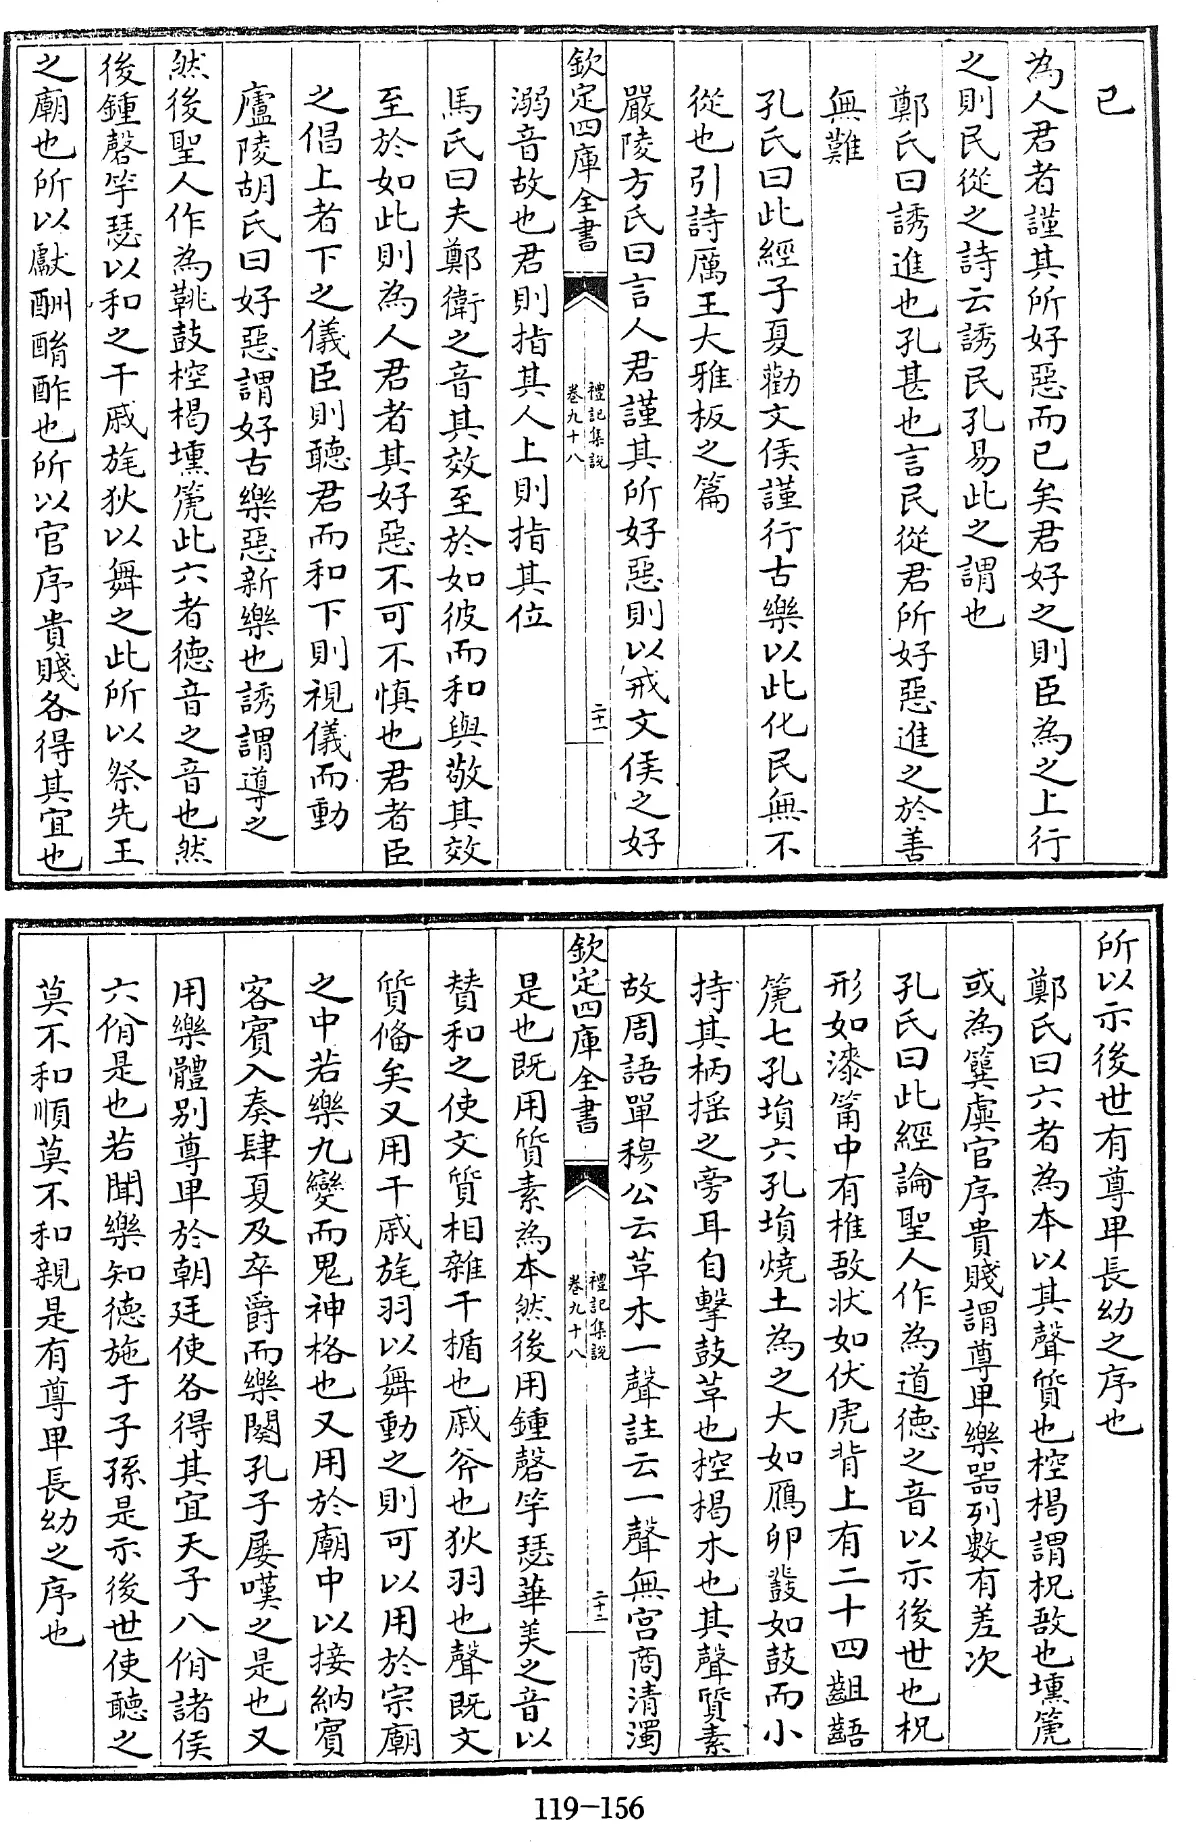 已
為人君者謹其所好惡而已矣君好之則臣為之上行
之則民從之詩云誘民孔易此之謂也
鄭氏曰誘進也孔甚也言民從君所好惡進之於善
無難
孔氏曰此經子夏勸文侯謹行古樂以此化民無不
從也引詩厲王大雅板之篇
嚴陵方氏曰言人君謹其所好惡則以戒文侯之好
欽定四庫全書
禮記集説
卷九十八
二十一
溺音故也君則指其人上則指其位
馬氏曰夫鄭衛之音其效至於如彼而和與敬其效
至於如此則為人君者其好惡不可不慎也君者臣
之倡上者下之儀臣則聽君而和下則視儀而動
廬陵胡氏曰好惡謂好古樂惡新樂也誘謂導之
然後聖人作為鞉鼓椌楬壎篪此六者德音之音也然
後鍾磬竽瑟以和之干戚旄狄以舞之此所以祭先王
之廟也所以獻酬酳酢也所以官序貴賤各得其宜也
所以示後世有尊卑長幼之序也
鄭氏曰六者為本以其聲質也椌楬謂柷敔也壎篪
或為簨虡官序貴賤謂尊卑樂器列數有差次
孔氏曰此經論聖人作為道德之音以示後世也柷
形如漆筩中有椎敔狀如伏虎背上有二十四齟齬
篪七孔塤六孔塤燒土為之大如鴈卵鼗如鼓而小
持其柄揺之旁耳自擊鼓革也椌楬木也其聲質素
故周語單穆公云革木一聲註云一聲無宫商清濁
欽定四庫全書
禮記集説
卷九十八
二十二
是也既用質素為本然後用鍾磬竽瑟華美之音以
賛和之使文質相雜干楯也戚斧也狄羽也聲既文
質備矣又用干戚旄羽以舞動之則可以用於宗廟
之中若樂九變而鬼神格也又用於廟中以接納賓
客賓入奏肆夏及卒爵而樂闋孔子屢嘆之是也又
用樂體别尊卑於朝廷使各得其宜天子八佾諸侯
六佾是也若聞樂知德施于子孫是示後世使聽之
莫不和順莫不和親是有尊卑長幼之序也
119-156